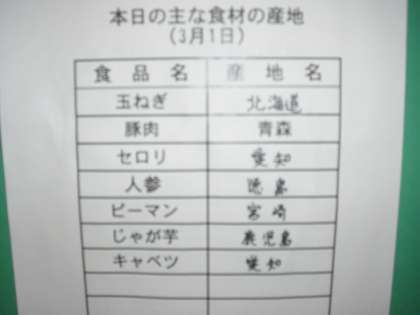 本日の主な食材の産地
(3月1日)
食品名 産地名
玉ねぎ 北海道
豚肉 青森
セロリ 愛知
人参 徳島
ピーマン 宮崎
じゃが芋 鹿児島
キャベツ 愛知